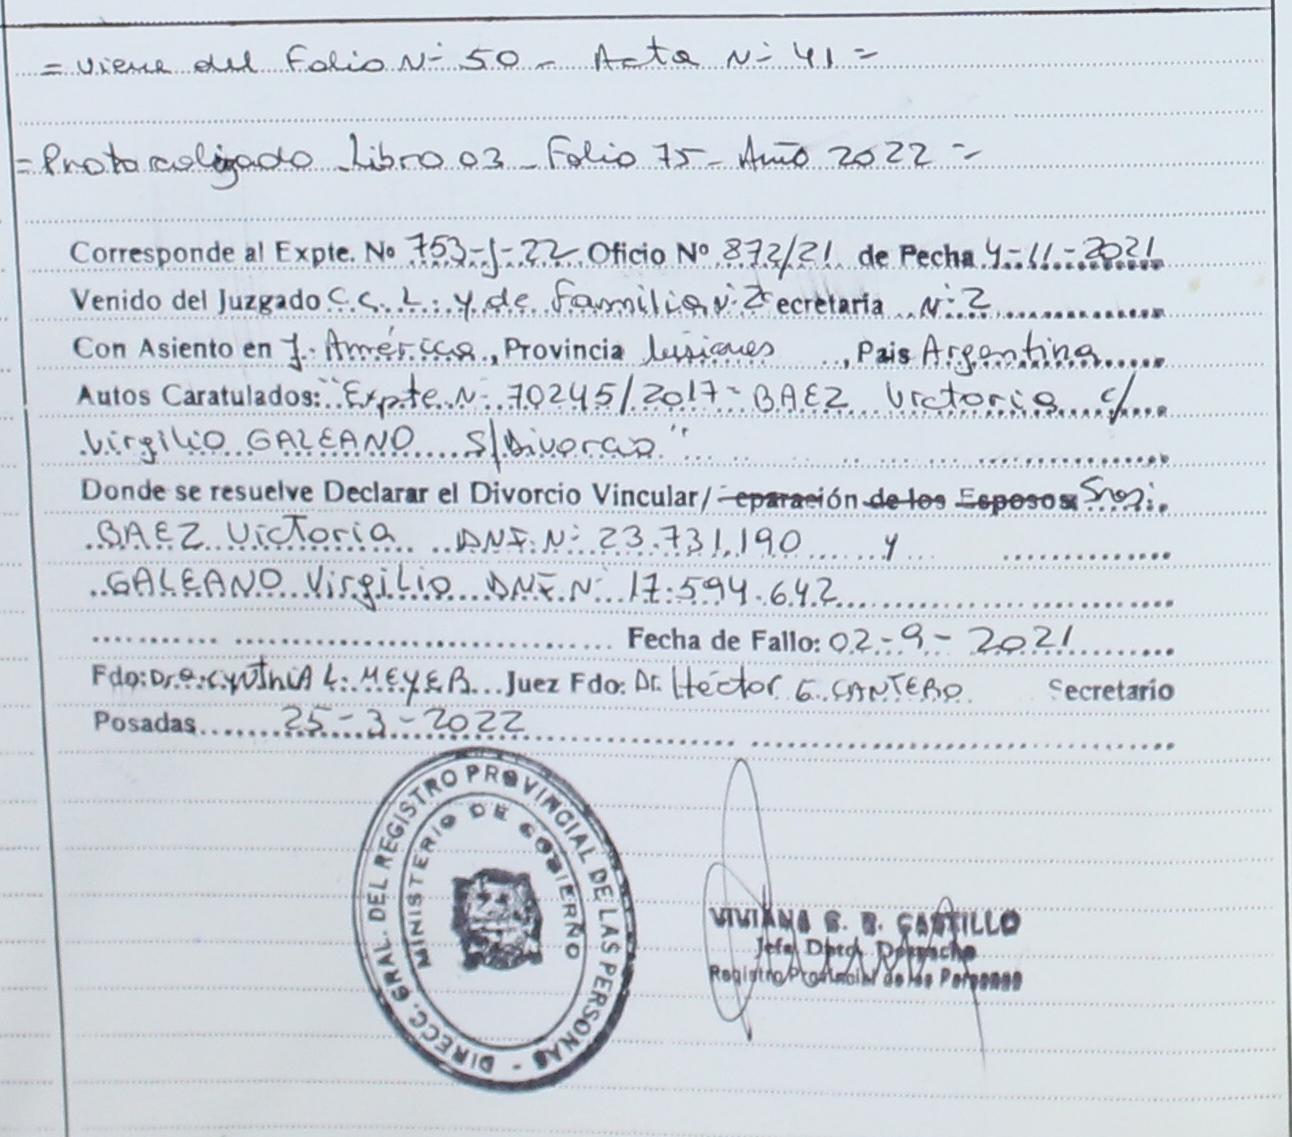 = Viene del Folio N° 50 - Acta N° 41 =
= Protocolizado Libro 03 - Folio 75 - Año 2022 =
Corresponde al Expte. Nº 753-J-22 Oficio Nº 872/21 de Fecha 4-11-2021
Venido del Juzgado C.C.L. y de Familia N° 2 ecretaria N° 2
Con Asiento en J. América, Provincia Misiones, Pais Argentina
Autos Caratulados: "Expte N° 70245/2017 - BAEZ Victoria c/
Virgilio GALEANO S/Divorcio"
Donde se resuelve Declarar el Divorcio Vincular/ eparación de los Esposos Sres:
BAEZ Victoria DNI. N° 23.731.190 y
GALEANO Virgilio DNI. N° 17.594.642
Fecha de Fallo: 02-9-2021
Fdo: Dra. CYNTHIA L. MEYER Juez Fdo: Dr. Héctor G. CANTERO Secretario
Posadas 25-3-2022
DIRECC. GRAL. DEL REGISTRO PROVINCIAL DE LAS PERSONAS -
MINISTERIO DE GOBIERNO
VIVIANA S. B. CASTILLO
Jefa Dpto. Despacho
Registro Provincial de las Personas